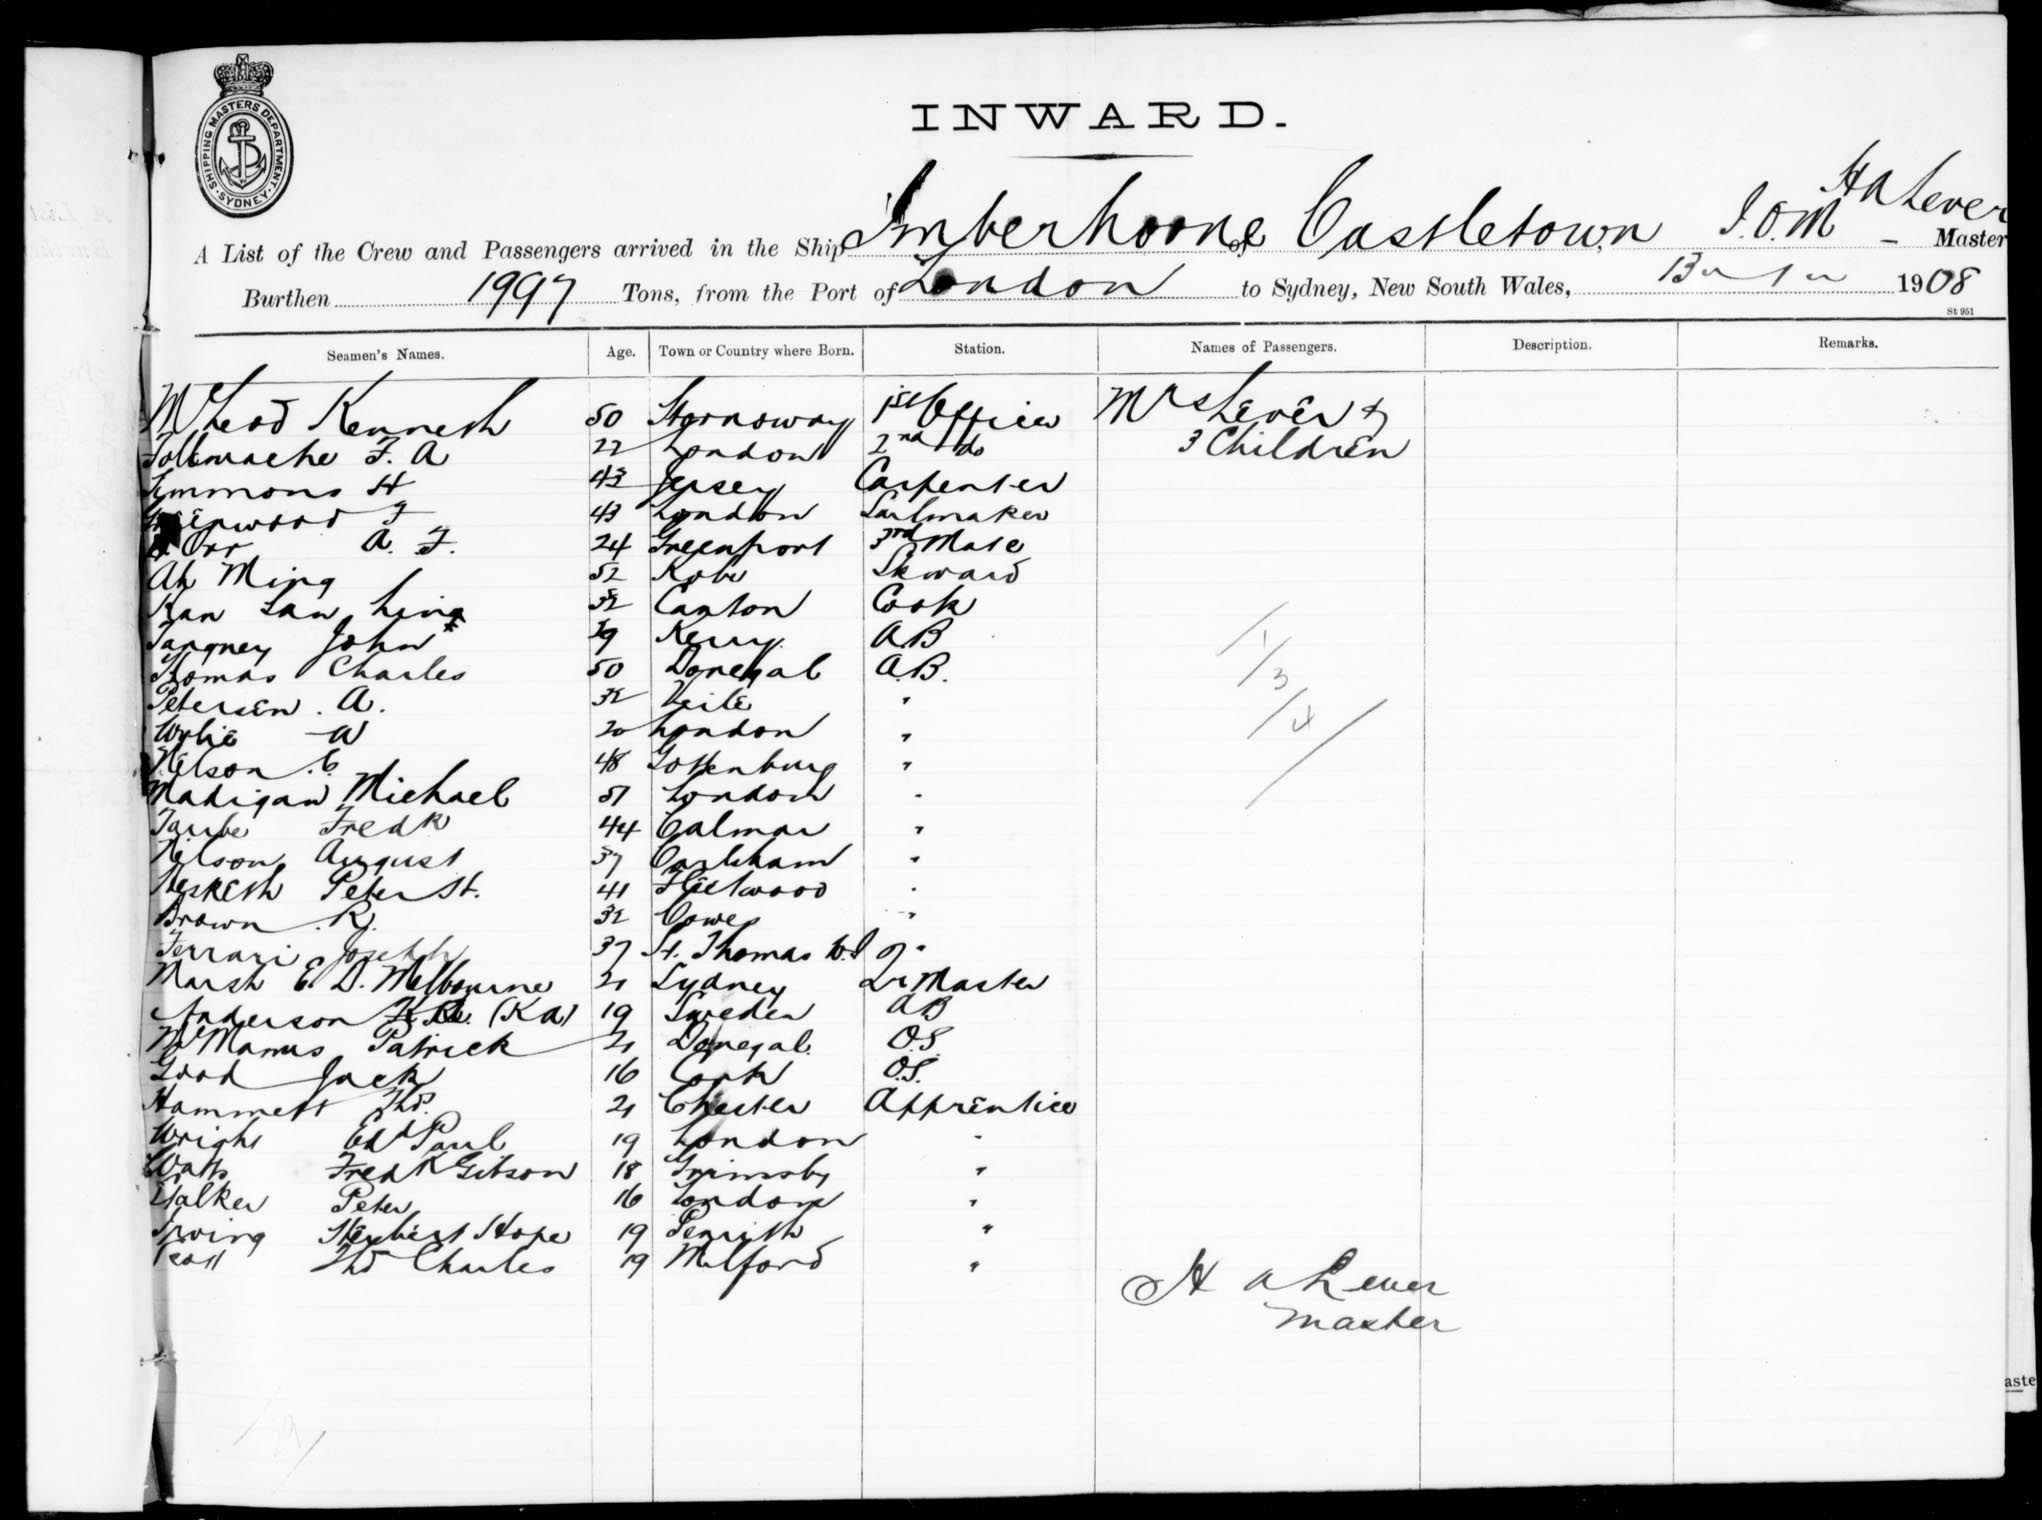 SHIPPING MASTERS DEPARTMENT. SYDNEY
INWARD.
H A Lever
A List of the Crew and Passengers arrived in the Ship Imberhorne of Castletown, I.O.M - Master
Burthen 1997 Tons, from the Port of London to Sydney, New South Wales, 1908
St 951
Seamen's Names. Age. Town or Country where Born. Station. Names of Passengers. Description. Remarks.
McLeod Kenneth 50 Stornoway 1st Officer Mrs Lever &
Tollemache F. A 22 London 2nd do 3 Children
Simmons H 43 Jersey Carpenter
Greenwood F 43 London Sailmaker
Orr A. F. 24 Greenport 3rd Mate
Ah Ming 52 Kobe Steward
Kan Law Ling 32 Canton Cook
Tangney John 39 Kerry AB
Thomas Charles 50 Donegal A.B.
Petersen . A. 32 Veile "
Wylie W 20 London "
Nelson . C. 48 Gottenburg "
Madigan Michael 51 London "
Taube Fredk 44 Calmar "
Nilson August 37 Carlsham "
Hesketh Peter H. 41 Fleetwood "
Brown . R. 32 Cowes "
Ferrari Joseph 37 St. Thomas W.I "
Marsh E D. Melbourne 21 Sydney Qr Master
Anderson (KA) 19 Sweden AB
McManus Patrick 21 Donegal O.S.
Good Jack 16 Cork O.S.
Hammett Thos. 21 Chester Apprentice
Wright Edd Paul 19 London "
Watts Fredk Gibson 18 Grimsby "
Stalker Peter 16 London "
Irving Herbert Hope 19 Penrith "
Thos Charles 19 Milford "
1/3/4/
H A Lever
Master
aste